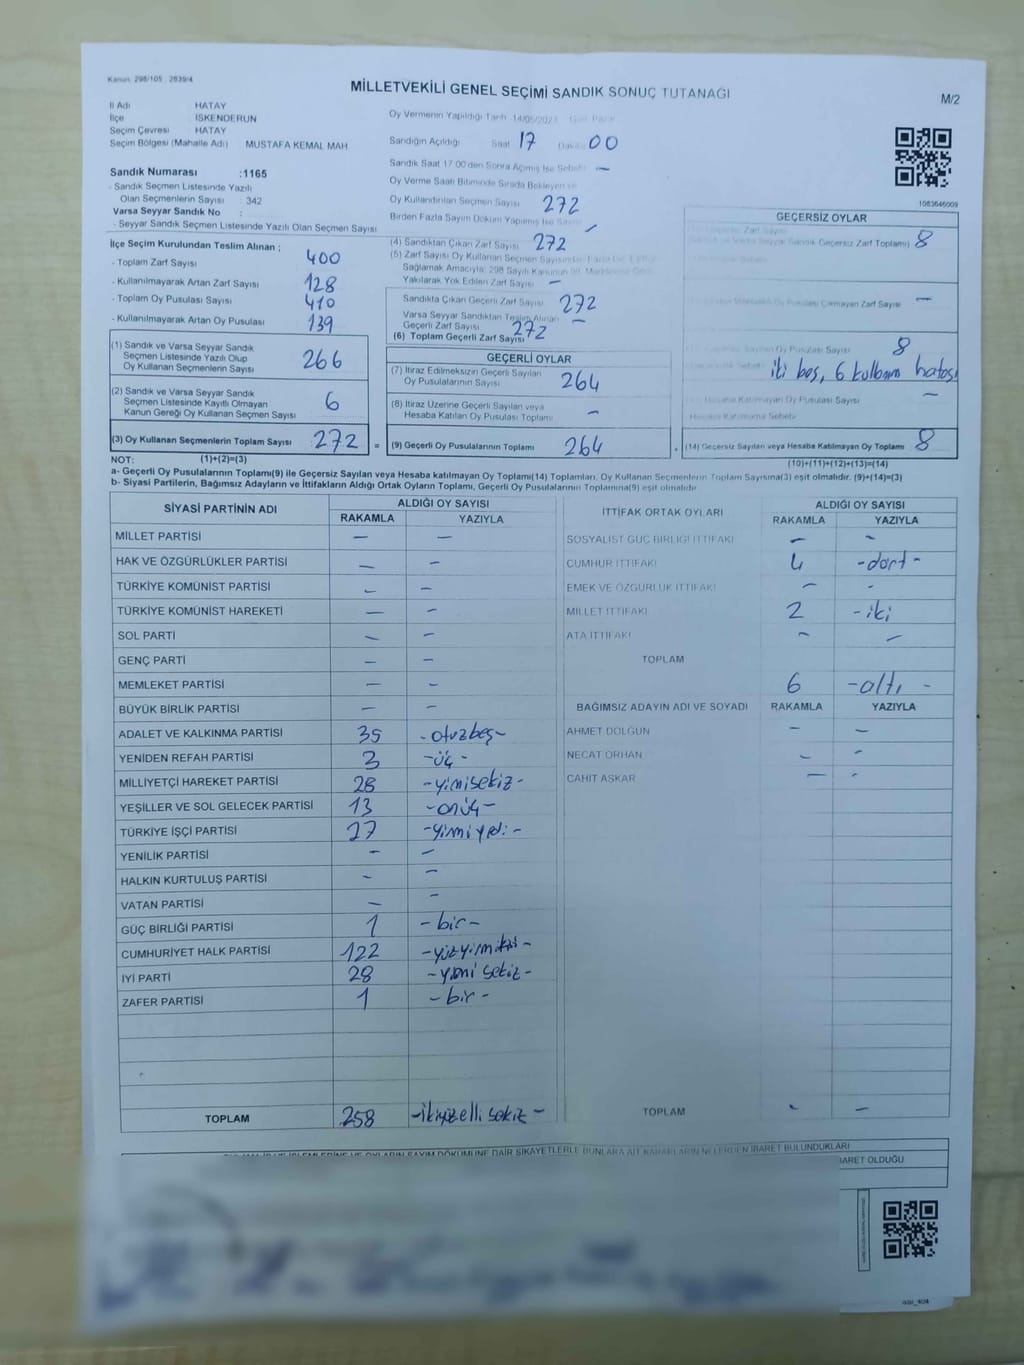 Kanun: 298/105 ; 2839/4
MİLLETVEKİLİ GENEL SEÇİMİ SANDIK SONUÇ TUTANAĞI
M/2
İl Adı HATAY
İlçe İSKENDERUN
Seçim Çevresi HATAY
Seçim Bölgesi (Mahalle Adı) MUSTAFA KEMAL MAH
Sandık Numarası :1165
- Sandık Seçmen Listesinde Yazılı
Olan Seçmenlerin Sayısı : 342
Varsa Seyyar Sandık No :
- Seyyar Sandık Seçmen Listesinde Yazılı Olan Seçmen Sayısı
Oy Vermenin Yapıldığı Tarih 14/05/2023
Sandığın Açıldığı Saat 17 Dakika 00
Sandık Saat 17:00'den Sonra Açılmış İse Sebebi —
Oy Verme Saati Bitiminde Sırada Bekleyen ve
Oy Kullandırılan Seçmen Sayısı 272
Birden Fazla Sayım Döküm Yapılmış İse
1083646009
İlçe Seçim Kurulundan Teslim Alınan ;
- Toplam Zarf Sayısı 400
- Kullanılmayarak Artan Zarf Sayısı 128
- Toplam Oy Pusulası Sayısı 410
- Kullanılmayarak Artan Oy Pusulası 139
(1) Sandık ve Varsa Seyyar Sandık
Seçmen Listesinde Yazılı Olup
Oy Kullanan Seçmenlerin Sayısı 266
(2) Sandık ve Varsa Seyyar Sandık
Seçmen Listesinde Kayıtlı Olmayan
Kanun Gereği Oy Kullanan Seçmen Sayısı 6
(3) Oy Kullanan Seçmenlerin Toplam Sayısı 272 =
(4) Sandıktan Çıkan Zarf Sayısı 272
(5) Zarf Sayısı Oy Kullanan Seçmen Sayısından
Sağlamak Amacıyla; 298 Sayılı Kanunun
Yakılarak Yok Edilen Zarf Sayısı —
Sandıkta Çıkan Geçerli Zarf Sayısı 272
Varsa Seyyar Sandıktan Teslim Alınan
Geçerli Zarf Sayısı —
(6) Toplam Geçerli Zarf Sayısı 272
GEÇERLİ OYLAR
(7) İtiraz Edilmeksizin Geçerli Sayılan
Oy Pusulalarının Sayısı 264
(8) İtiraz Üzerine Geçerli Sayılan veya
Hesaba Katılan Oy Pusulası Toplamı —
(9) Geçerli Oy Pusulalarının Toplamı 264
GEÇERSİZ OYLAR
Sandık ve Varsa Seyyar Sandık Geçersiz Zarf Toplamı) 8
Çıkmayan Zarf Sayısı —
Oy Pusulası Sayısı 8
iki boş, 6 kullanım hatası
Hesaba Katılmayan Oy Pusulası Sayısı —
Hesaba Katılmama Sebebi
(14) Geçersiz Sayılan veya Hesaba Katılmayan Oy Toplamı 8
NOT: (1)+(2)=(3)
(10)+(11)+(12)+(13)=(14)
a- Geçerli Oy Pusulalarının Toplamı(9) ile Geçersiz Sayılan veya Hesaba katılmayan Oy Toplamı(14) Toplamları, Oy Kullanan Seçmenlerin Toplam Sayısına(3) eşit olmalıdır. (9)+(14)=(3)
b- Siyasi Partilerin, Bağımsız Adayların ve İttifakların Aldığı Ortak Oyların Toplamı, Geçerli Oy Pusulalarının Toplamına(9) eşit olmalıdır
SİYASİ PARTİNİN ADI ALDIĞI OY SAYISI
RAKAMLA YAZIYLA
MİLLET PARTİSİ — —
HAK VE ÖZGÜRLÜKLER PARTİSİ — —
TÜRKİYE KOMÜNİST PARTİSİ — —
TÜRKİYE KOMÜNİST HAREKETİ — —
SOL PARTİ — —
GENÇ PARTİ — —
MEMLEKET PARTİSİ — —
BÜYÜK BİRLİK PARTİSİ — —
ADALET VE KALKINMA PARTİSİ 35 -otuzbeş-
YENİDEN REFAH PARTİSİ 3 -üç-
MİLLİYETÇİ HAREKET PARTİSİ 28 -yimisekiz-
YEŞİLLER VE SOL GELECEK PARTİSİ 13 -onüç-
TÜRKİYE İŞÇİ PARTİSİ 27 -yimiyedi-
YENİLİK PARTİSİ — —
HALKIN KURTULUŞ PARTİSİ — —
VATAN PARTİSİ — —
GÜÇ BİRLİĞİ PARTİSİ 1 -bir-
CUMHURİYET HALK PARTİSİ 122 -yüzyirmiiki-
İYİ PARTİ 28 -yimi sekiz-
ZAFER PARTİSİ 1 -bir-
TOPLAM 258 -ikiyüzelli sekiz-
İTTİFAK ORTAK OYLARI ALDIĞI OY SAYISI
RAKAMLA YAZIYLA
SOSYALİST GÜÇ BİRLİĞİ İTTİFAKI — —
CUMHUR İTTİFAKI 4 -dört-
EMEK VE ÖZGÜRLÜK İTTİFAKI — —
MİLLET İTTİFAKI 2 -iki
ATA İTTİFAKI — —
TOPLAM 6 -altı-
BAĞIMSIZ ADAYIN ADI VE SOYADI RAKAMLA YAZIYLA
AHMET DOLGUN — —
NECAT ORHAN — —
CAHİT AŞKAR — —
TOPLAM — —
ŞİKAYETLERLE BUNLARA AİT KARARLARIN NELERDEN İBARET BULUNDUKLARI
İBARET OLDUĞU